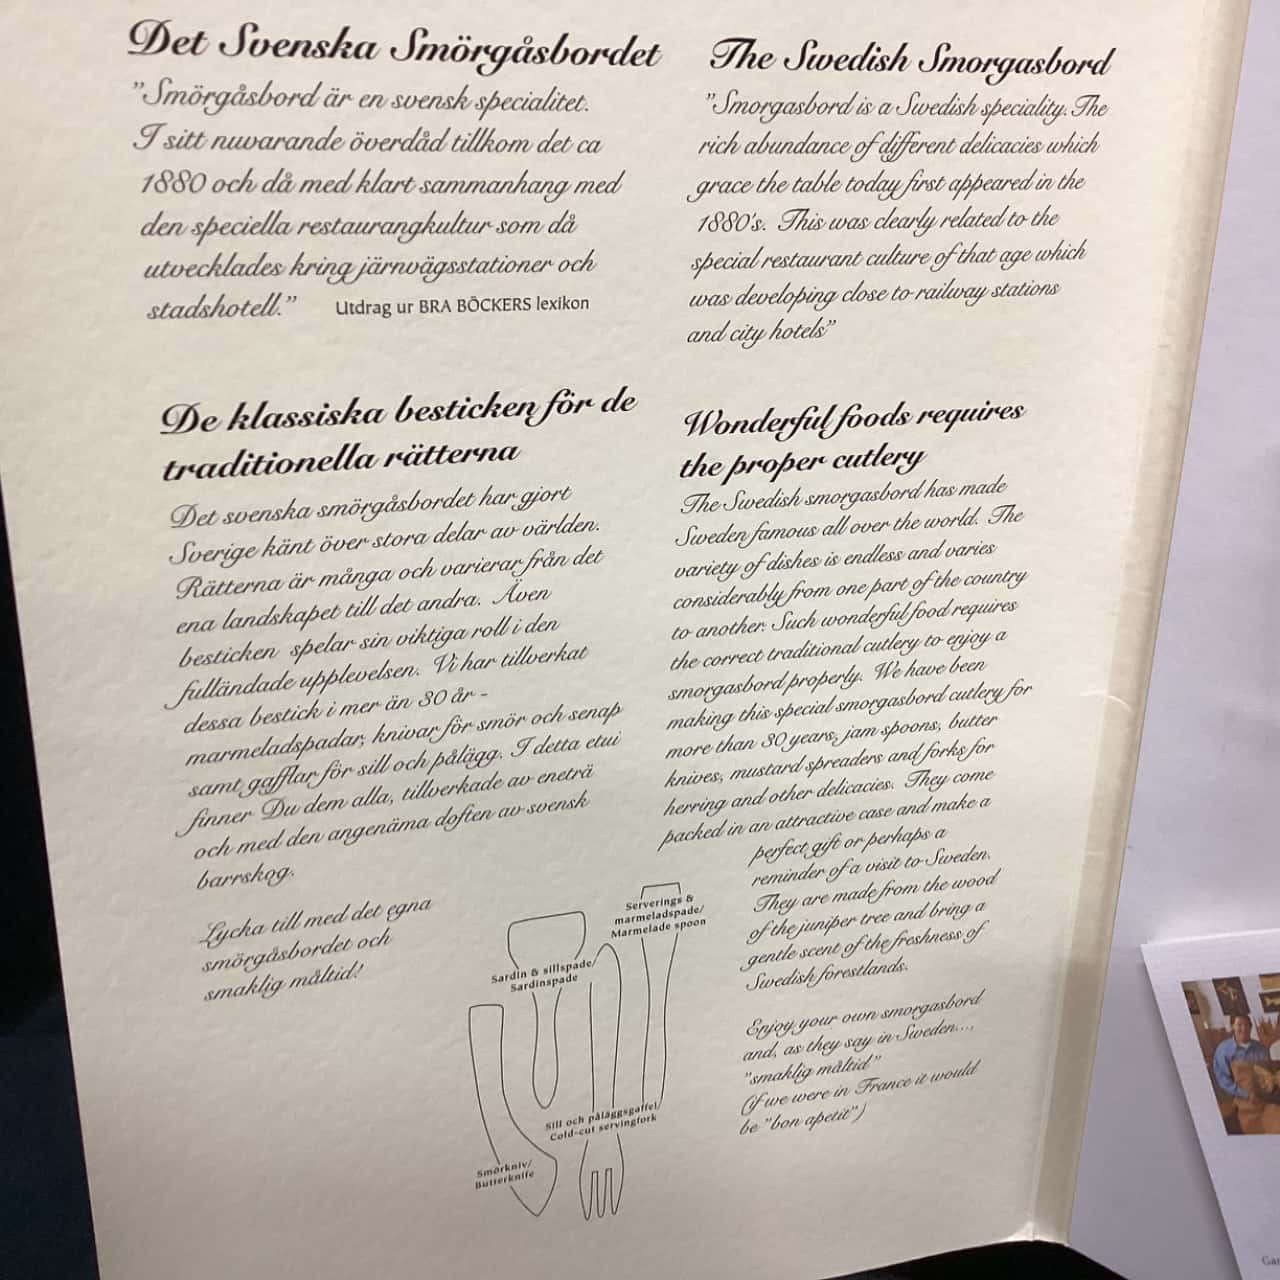 Det Svenska Smörgåsbordet
"Smörgåsbord är en svensk specialitet.
I sitt nuvarande överdåd tillkom det ca
1880 och då med klart sammanhang med
den speciella restaurangkultur som då
utvecklades kring järnvägsstationer och
stadshotell."
Utdrag ur BRA BÖCKERS lexikon
De klassiska besticken för de
traditionella rätterna
Det svenska smörgåsbordet har gjort
Sverige känt över stora delar av världen.
Rätterna är många och varierar från det
ena landskapet till det andra. Även
besticken spelar sin viktiga roll i den
fulländade upplevelsen. Vi har tillverkat
dessa bestick i mer än 30 år -
marmeladspadar, knivar för smör och senap
samt gafflar för sill och pålägg. I detta etui
finner Du dem alla, tillverkade av eneträ
och med den angenäma doften av svensk
barrskog.
Lycka till med det egna
smörgåsbordet och
smaklig måltid!
The Swedish Smorgasbord
"Smorgasbord is a Swedish speciality. The
rich abundance of different delicacies which
grace the table today first appeared in the
1880's. This was clearly related to the
special restaurant culture of that age which
was developing close to railway stations
and city hotels"
Wonderful foods requires
the proper cutlery
The Swedish smorgasbord has made
Sweden famous all over the world. The
variety of dishes is endless and varies
considerably from one part of the country
to another. Such wonderful food requires
the correct traditional cutlery to enjoy a
smorgasbord properly. We have been
making this special smorgasbord cutlery for
more than 30 years, jam spoons, butter
knives, mustard spreaders and forks for
herring and other delicacies. They come
packed in an attractive case and make a
perfect gift or perhaps a
reminder of a visit to Sweden.
They are made from the wood
of the juniper tree and bring a
gentle scent of the freshness of
Swedish forestlands.
Enjoy your own smorgasbord
and, as they say in Sweden...,
"smaklig måltid"
(if we were in France it would
be "bon apetit")
Serverings &
marmeladspade/
Marmelade spoon
Sardin & sillspade/
Sardinspade
Sill och påläggsgaffel/
Cold-cut servingfork
Smörkniv/
Butterknife